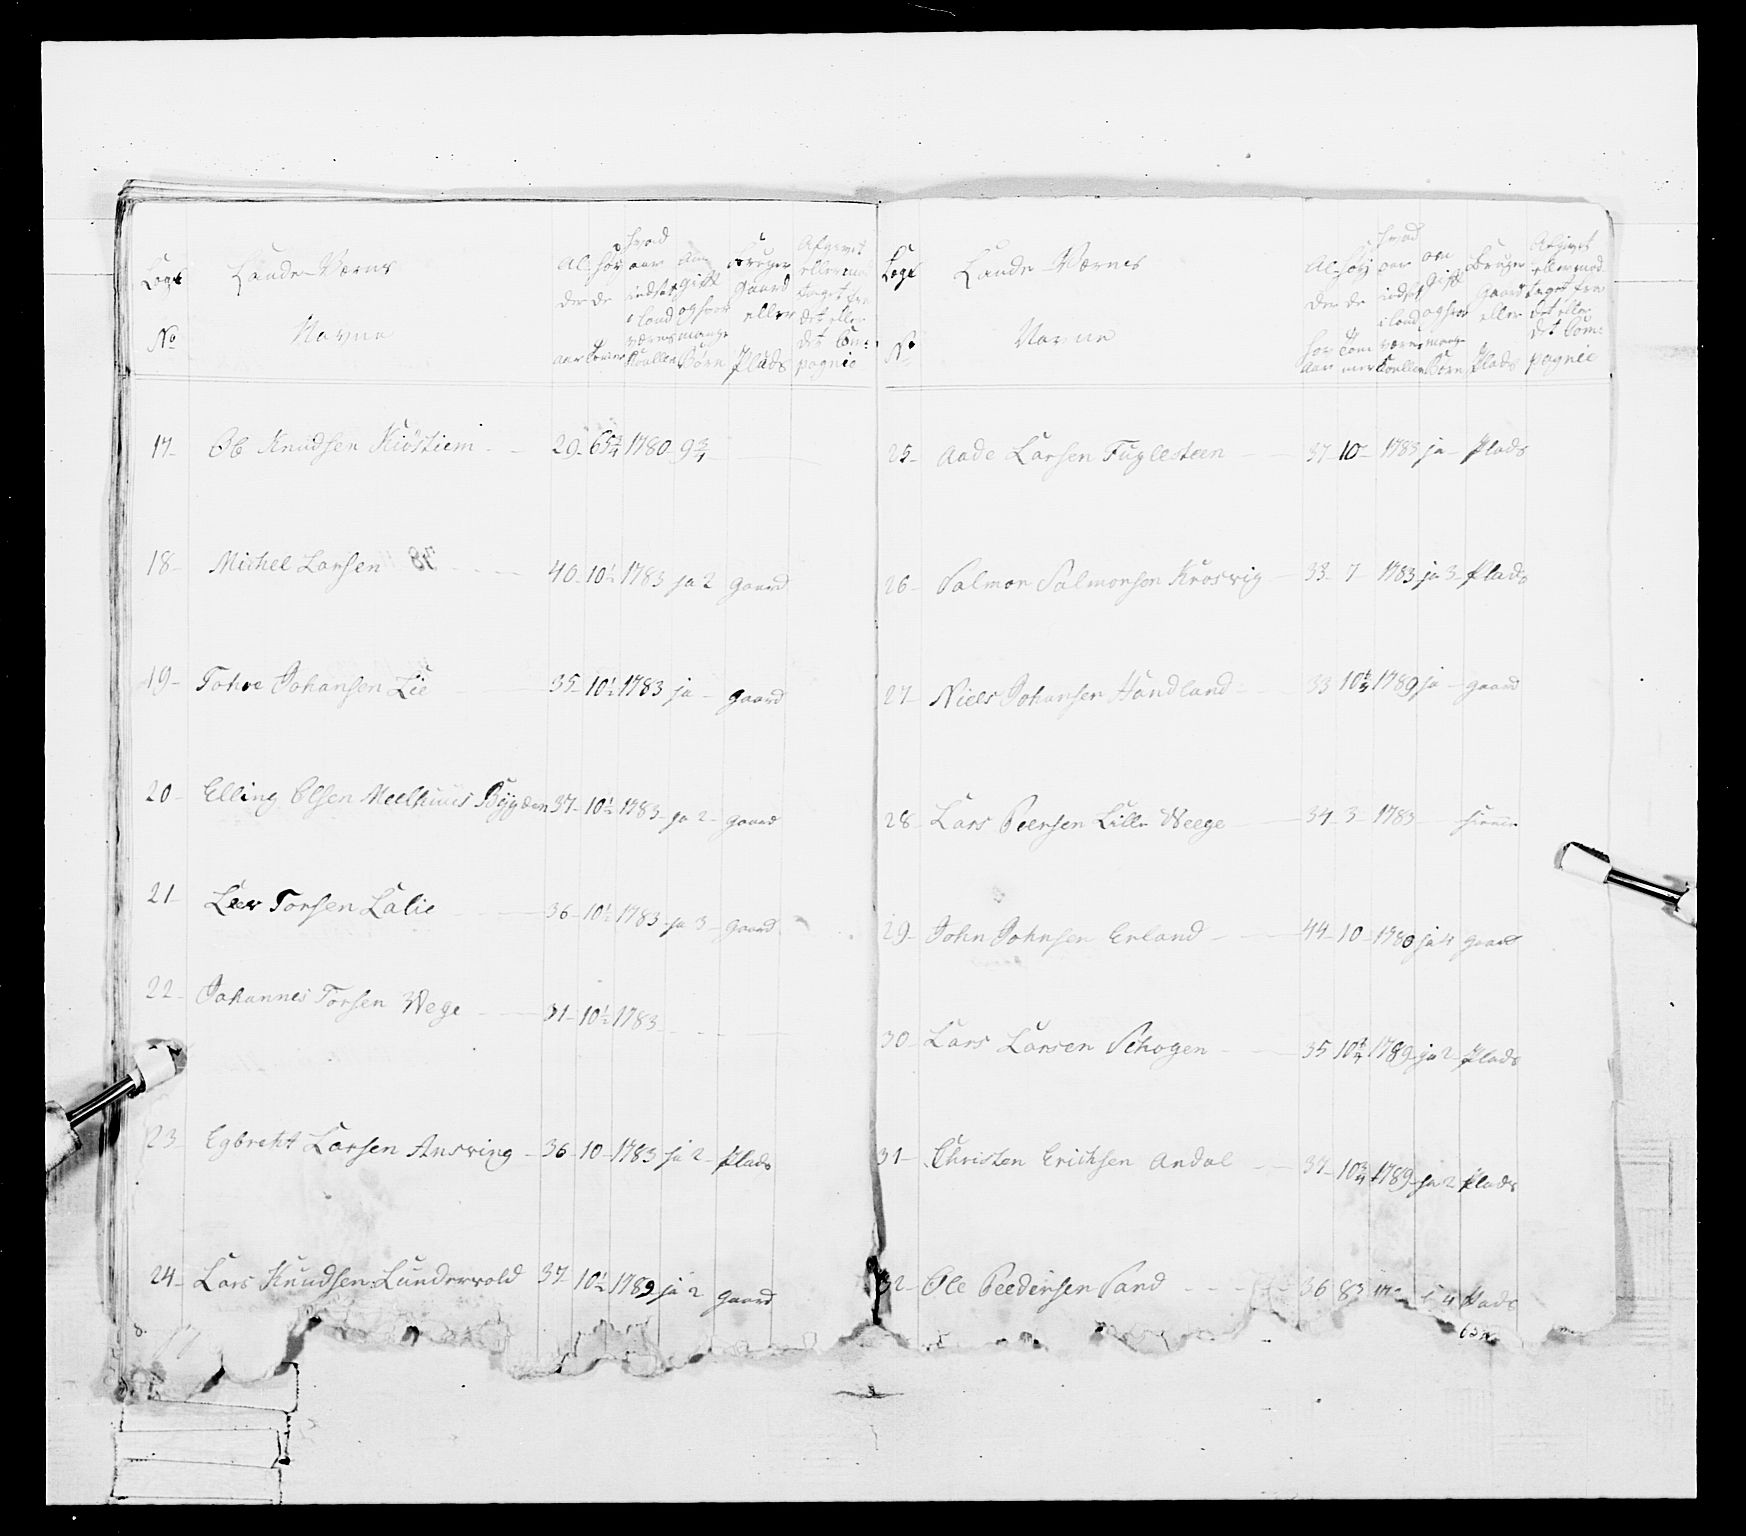 Legs Lande-Værns
No Navne
Al der aar
höy de tomer
hvad aar indsat i land værns Roullen
Om gift og hvor mange Börn
bruger Gaard eller Plads
Afgivet eller mod taget fra det eller det Com: pagnie
17- Ole Knudsen Kiöstiem - - 29- 65 3/4 1780- 9 3/4
18- Michel Larsen - - - 40- 10 1/2 1783 ja 2 gaard
19- Tohre Johansen Lie 35- 10 1/2 1783 ja - gaard
20- Elling Olsen Meelhuus Bÿgden 37- 10 1/2 1783- ja 2- gaard
21- Lar Torsen Lalie 36- 10 1/2 1783- ja 3- gaard
22- Johannes Torsen Wege - 31- 10 1/2 1783
23- Egbreht Larsen Answing - 36- 10- 1783- ja 2- Plads
24- Lars Knudsen Lunderwold 37- 10 1/2 1789 ja 2 gaard
Legs Lande-Værnes
No Navne
Al der hor Aar
Höy de Tom mer
hvad aar indsat i land værns Roullen
om gift og hvor mange Börn
Bruger Gaard eller Plads
Afgivet eller mod taget fra det eller det Com: pagnie
25- Aade Larsen Fuglesteen - 37- 10- 1783 ja- Plads
26- Salmon Salmonsen Kroswig - 33- 7- 1783 ja 3- Plads
27- Niels Johansen Handland - 33- 10 1789 ja - gaard
28- Lars Peersen Lille Weege 34- 3- 1783
29- John Johnsen Erland - 44- 10- 1780 ja 4 gaard
30- Lars Larsen Schogen - 35 10 1/4 1789 ja 2- Plads
31- Christen Erichsen Andal - 37- 10 3/4 1789- ja 2 Plads
32- Ole Peedersen Sand - - - 36 83 4 Plads